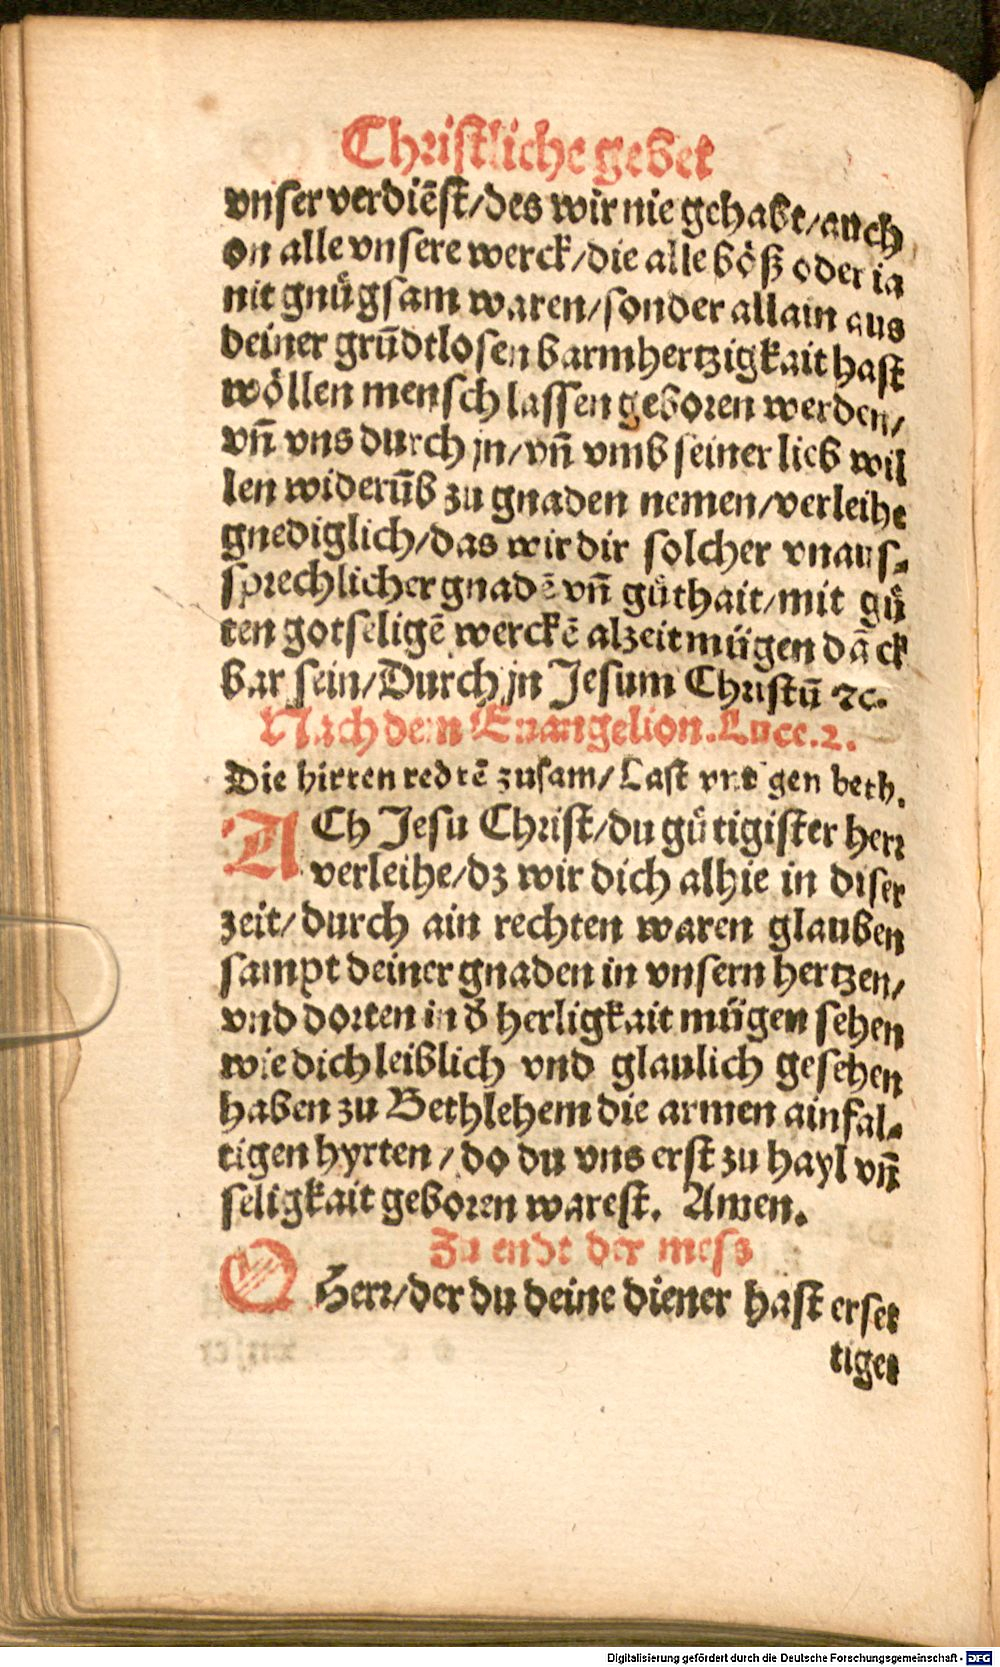 Christliche gebet
vnser verdiēst/des wir nie gehabt/auch
on alle vnsere werck/die alle böß oder ia
nit gnůgsam waren/sonder allain aus
deiner grūdtlosen barmhertzigkait hast
wöllen mensch lassen geboren werden/
vn̄ vns durch jn/vn̄ vmb seiner lieb wil
len widerūb zu gnaden nemen/verleihe
gnediglich/das wir dir solcher vnaus-
sprechlicher gnadē vn̄ gůthait/mit gů
ten gotseligē werckē alzeit mügen dāck
bar sein/Durch jn Jesum Christū ⁊c.
Nach dem Euangelion.Luce.2.
Die hirten redtē zusam/Last vns gen beth.
ACh Jesu Christ/du gůtigister herr
verleihe/dz wir dich alhie in diser
zeit/durch ain rechten waren glauben
sampt deiner gnaden in vnsern hertzen/
vnd dorten in d̕ herligkait mügen sehen
wie dich leiblich vnd glaulich gesehen
haben zu Bethlehem die armen ainfal-
tigen hyrten/do du vns erst zu hayl vn̄
seligkait geboren warest. Amen.
Zu endt der mess
O Herr/der du deine diener hast erset
tiget
Digitalisierung gefördert durch die Deutsche Forschungsgemeinschaft - DFG